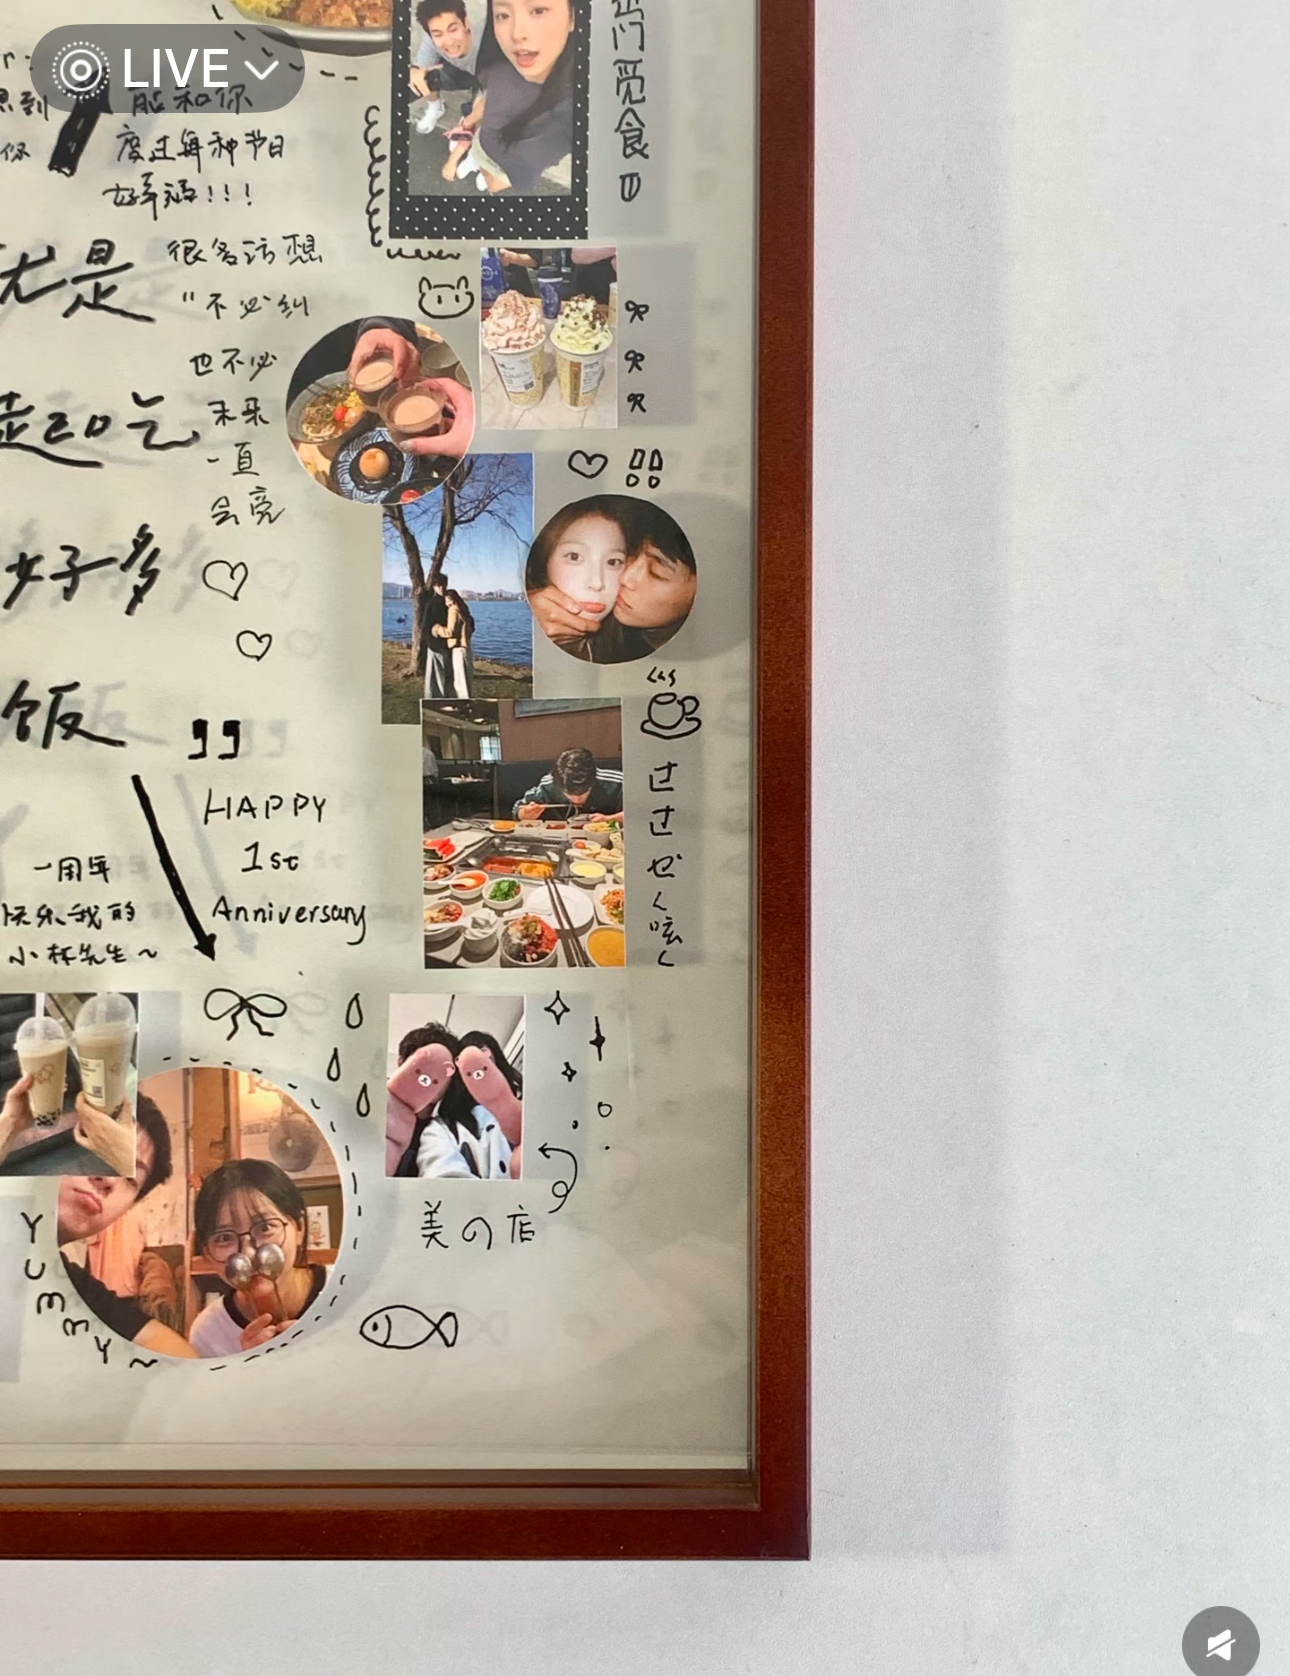 LIVE
思到
你
能和你
度过每种节日
好幸福!!!
很多话想
"不必纠
也不必
未来
一直
会亮
尤是
起吃
好多
饭
"
HAPPY
1st
Anniversary
一周年
快乐我的
小林先生~
门觅食
美の店
YUMMY~